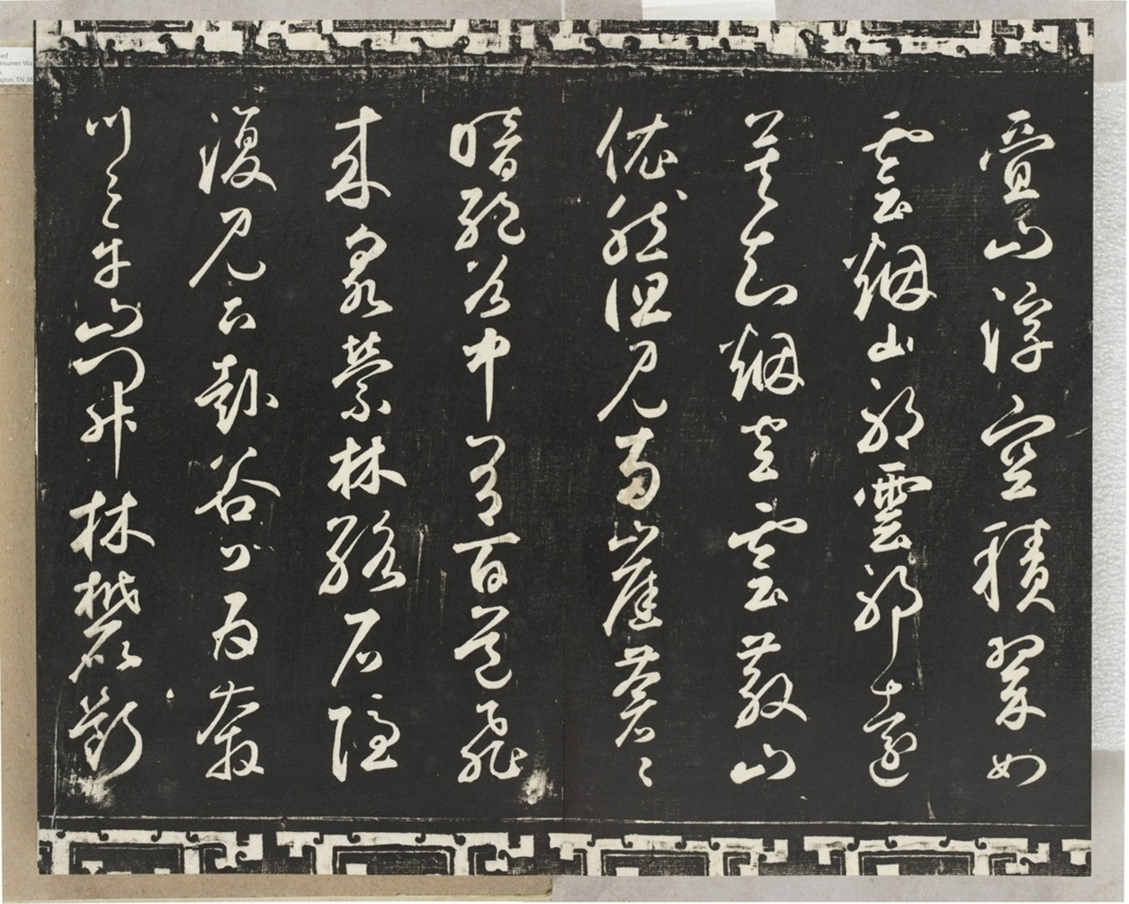 疊山浮空積翠如
雲烟山耶雲耶遠
莫知烟空雲散山
依然但見兩崖蒼〻
暗絕谷中有百道飛
來泉縈林絡石隱
復見下赴谷口為奔
川〻平山開林麓斷